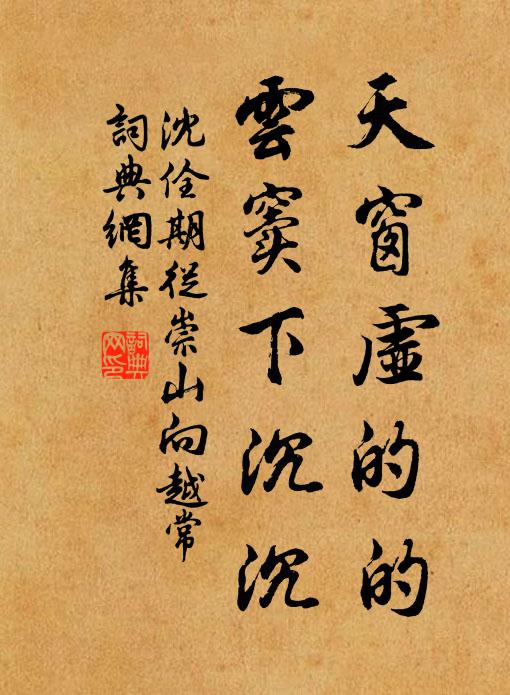 天窗虛的的
雲竇下沉沉
沈佺期從崇山向越常
詞典網集
詞典网印